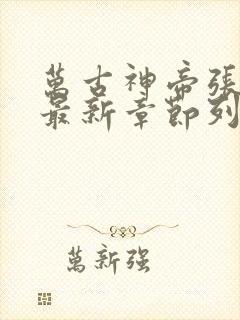 萬古神帝張
最新章節列
萬新强